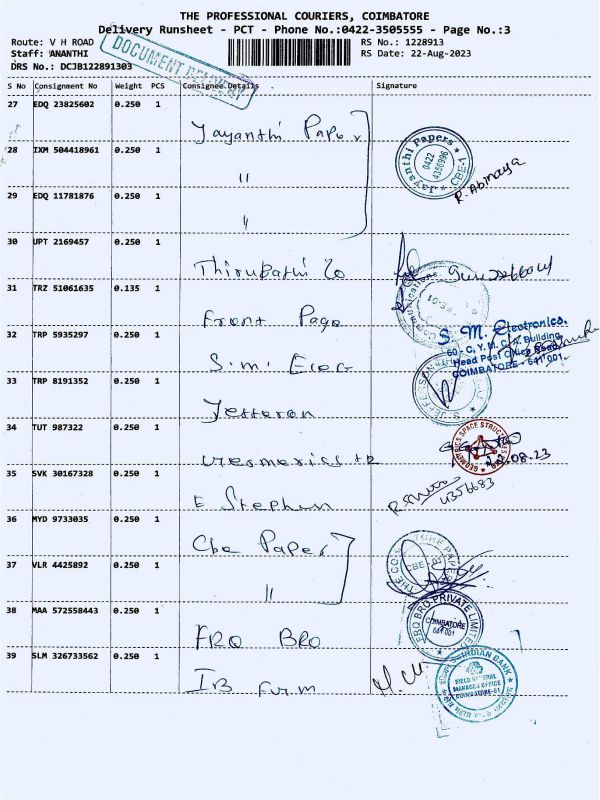 THE PROFESSIONAL COURIERS, COIMBATORE
Delivery Runsheet - PCT - Phone No.:0422-3505555 - Page No.:3
Route: V H ROAD
RS No.: 1228913
Staff: ANANTHI
RS Date: 22-Aug-2023
DRS No.: DCJB122891303
DOCUMENT DELIVERY
S No Consignment No Weight PCS Consignee Details Signature
27 EDQ 23825602 0.250 1
Jayanthi Paper
Jayanthi Papers
0422
4350996
CBE-1
28 IXM 504418961 0.250 1
"
R. Abinaya
29 EDQ 11781876 0.250 1
"
30 UPT 2169457 0.250 1
Thirupathi Co
31 TRZ 51061635 0.135 1
Front Page
Communications
32 TRP 5935297 0.250 1
S.M. Elec
S. M. Electronics.
60 - C, Y. M. C. A. Building,
Head Post Office Road,
COIMBATORE - 641 001.
33 TRP 8191352 0.250 1
34 TUT 987322 0.250 1
GEOMETRICS SPACE STRUCTURES
.08.23
35 SVK 30167328 0.250 1
E Stephen
4356683
36 MYD 9733035 0.250 1
Cbe Paper
37 VLR 4425892 0.250 1
"
38 MAA 572558443 0.250 1
FRQ BRO
EBQ BRO PRIVATE LIMITED
COIMBATORE
641 001
39 SLM 326733562 0.250 1
IB
INDIAN BANK
FIELD GENERAL
MANAGER OFFICE
COIMBATORE-01